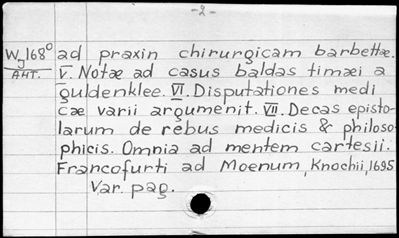 -2-
Wg168° ad praxin chirurgicam barbettæ.
AHT. V. Notæ ad casus baldas timæi a
guldenklee. VI. Disputationes medi
cæ varii argumenit. VII. Decas episto-
larum de rebus medicis & philoso-
phicis. Omnia ad mentem cartesii.
Francofurti ad Moenum, Knochii, 1695
Var. pag.